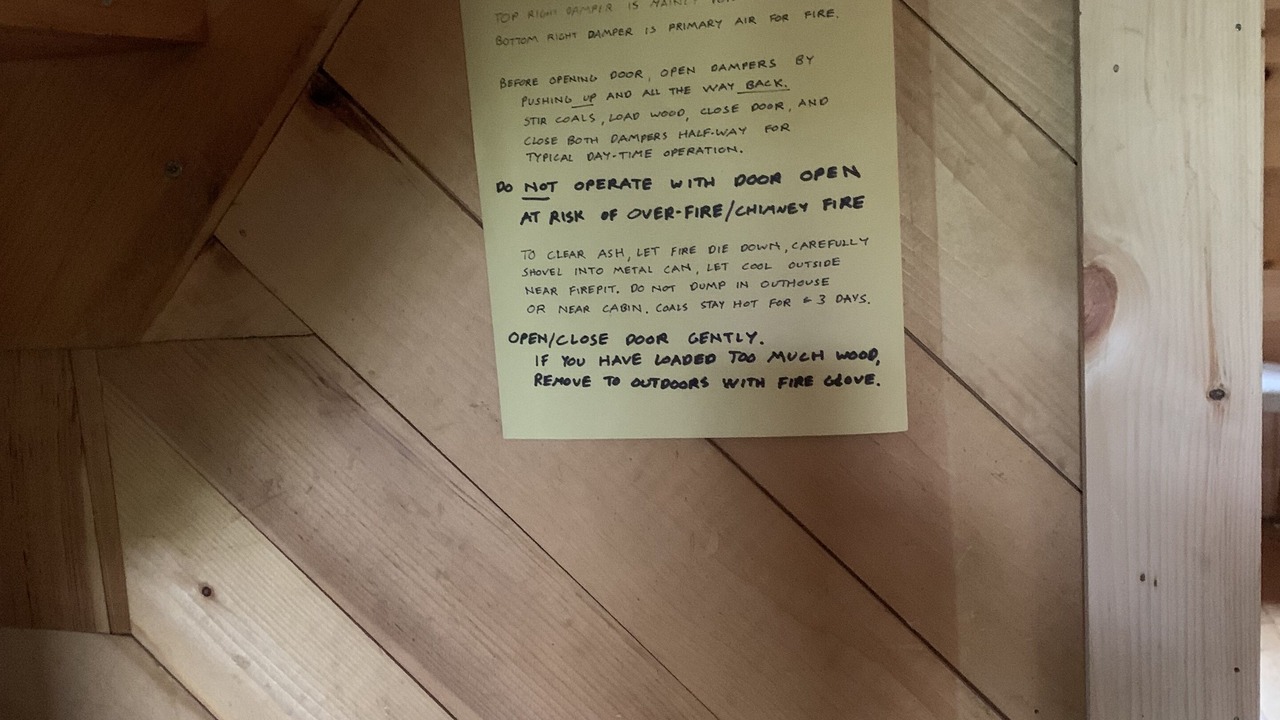 TOP RIGHT DAMPER IS MAINLY
BOTTOM RIGHT DAMPER IS PRIMARY AIR FOR FIRE.
BEFORE OPENING DOOR, OPEN DAMPERS BY
PUSHING UP AND ALL THE WAY BACK.
STIR COALS, LOAD WOOD, CLOSE DOOR, AND
CLOSE BOTH DAMPERS HALF-WAY FOR
TYPICAL DAY-TIME OPERATION.
DO NOT OPERATE WITH DOOR OPEN
AT RISK OF OVER-FIRE/CHIMNEY FIRE
TO CLEAR ASH, LET FIRE DIE DOWN, CAREFULLY
SHOVEL INTO METAL CAN, LET COOL OUTSIDE
NEAR FIREPIT. DO NOT DUMP IN OUTHOUSE
OR NEAR CABIN. COALS STAY HOT FOR 3 DAYS.
OPEN/CLOSE DOOR GENTLY.
IF YOU HAVE LOADED TOO MUCH WOOD,
REMOVE TO OUTDOORS WITH FIRE GLOVE.